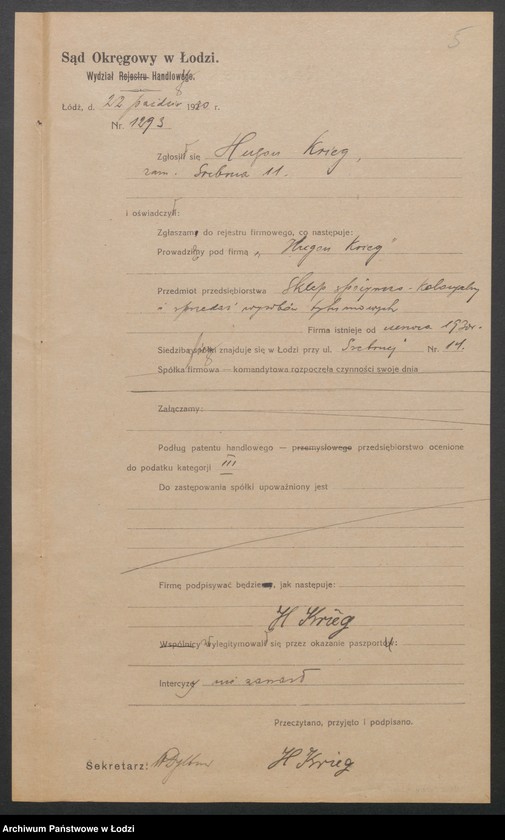 5
Sąd Okręgowy w Łodzi.
Wydział Rejestru Handlowego.
Łódź, d. 22 paździer 1930 r.
Nr. 1293
Zgłosił się Hugon Krieg,
zam. Srebrna 11.
i oświadczył:
Zgłaszam do rejestru firmowego, co następuje:
Prowadzimy pod firmą „Hugon Krieg"
Przedmiot przedsiębiorstwa Sklep spożywczo-kolonjalny
i sprzedaż wyrobów tytoniowych
Firma istnieje od czerwca 1930r.
Siedziba spółki znajduje się w Łodzi przy ul. Srebrnej Nr. 11.
Spółka firmowa — komandytowa rozpoczęła czynności swoje dnia
Załączamy:
Podług patentu handlowego — przemysłowego przedsiębiorstwo ocenione
do podatku kategorji III
Do zastępowania spółki upoważniony jest
Firmę podpisywać będzie, jak następuje:
H Krieg
Wspólnicy wylegitymowali się przez okazanie paszportów:
Intercyzy nie zawarł
Przeczytano, przyjęto i podpisano.
Sekretarz: H Krieg
Archiwum Państwowe w Łodzi